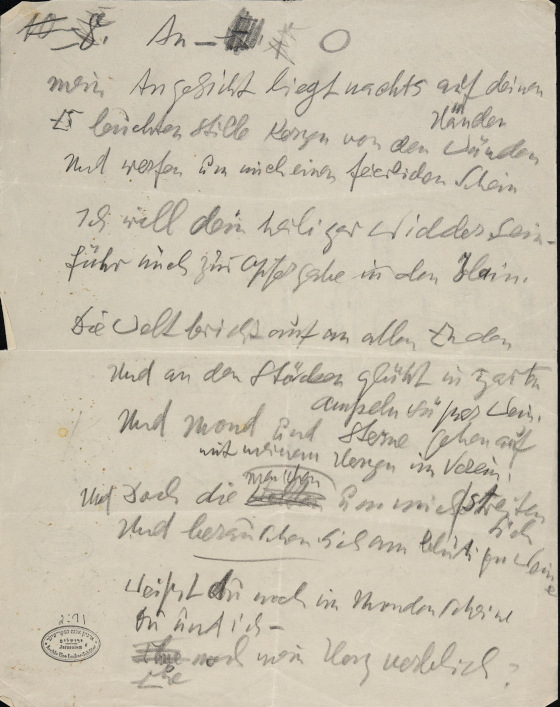 8. An
mein Angesicht liegt nachts auf deinen
Händen
Es leuchten stille Kerzen von den Wänden
Und werfen um mich einen feierlichen Schein
Ich will dein heiliger Widder sein-
führ mich zur Opfergabe in den Hain.
Die Welt bricht auf an allen Enden
Und an den Stöcken glüht in zarten
Ampeln süßer Wein.
Und Mond und Sterne gehen auf
mit meinem Herzen im Verein.
Menschen
Und Doch die um mich streiten
sich
Und berauschen sich am blutigen Weine
Weißt du noch im Mondenscheine
Du und ich-
Ehe noch mein Herz verblich?
2:91
Jerusalem